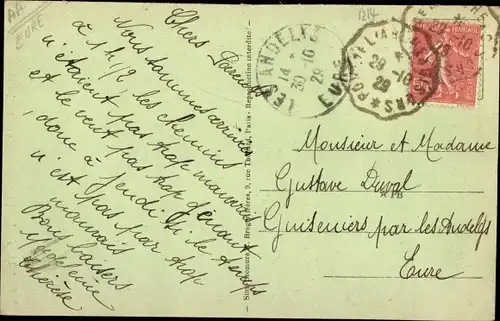 AA
EURE
1214
Chers Parents
Nous sommes arrivés
à 1h 1/2 les chemins
n'étaient pas trop mauvais
et le vent pas trop gênant
donc à jeudi si le temps
n'est pas par trop
mauvais
Bons baisers
LES ANDELYS
14
30-10
29
EURE
PONT DE L'ARCHE
29-10
29
FRANÇAISE
Monsieur et Madame
Gustave Duval
Guiseniers par les Andelys
Eure
PB
9, rue
Paris - Reproduction interdite